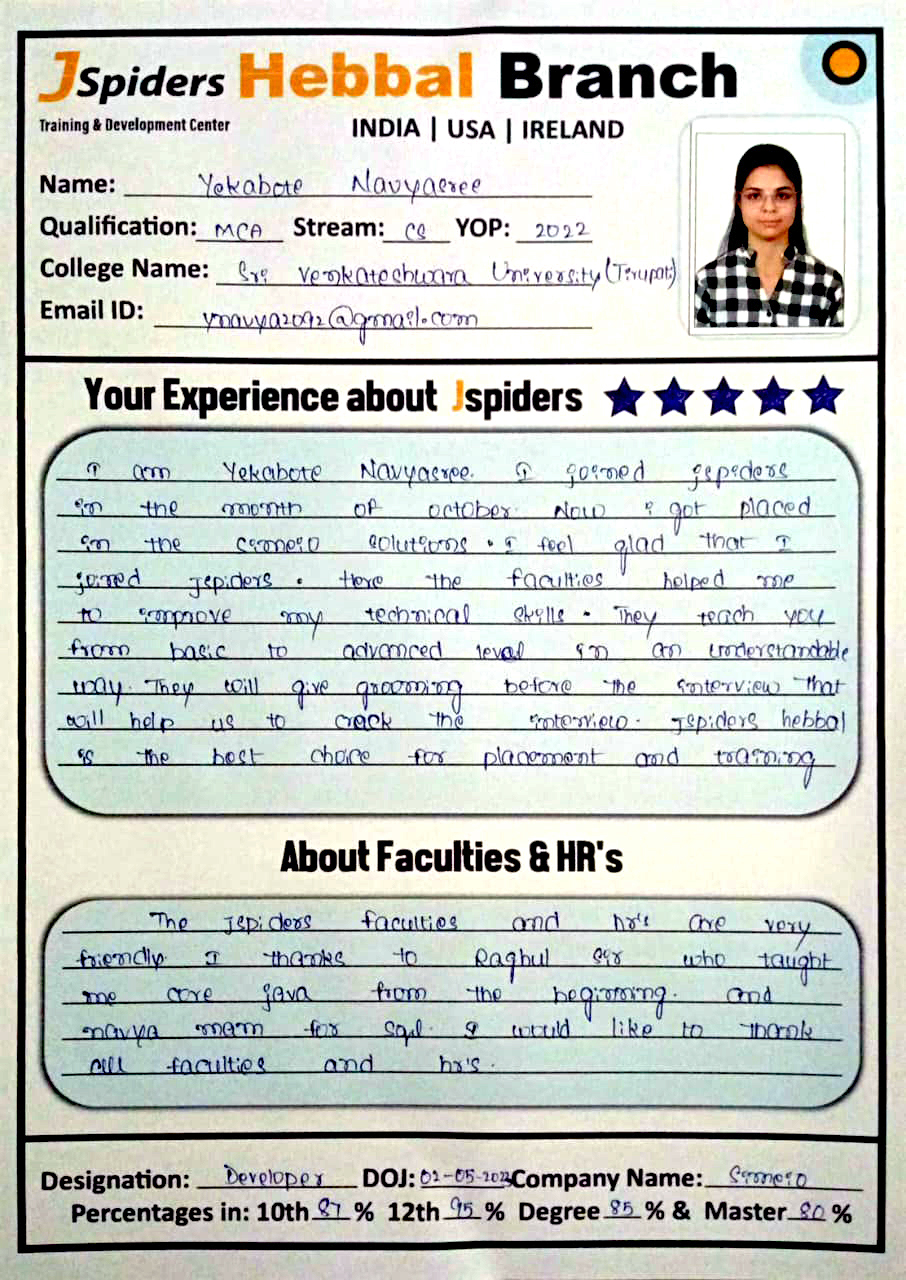 JSpiders Hebbal Branch
Training & Development Center
INDIA | USA | IRELAND
Name: Yekabote Navyasree
Qualification: MCA Stream: CS YOP: 2022
College Name: Sri Venkateshwara University (Tirupati)
Email ID: ynavya2092@gmail.com
Your Experience about Jspiders
I am Yekabote Navyasree. I joined jspiders
in the month of october. Now i got placed
in the simeio solutions. I feel glad that I
joined jspiders. Here the faculties helped me
to improve my technical skills. They teach you
from basic to advanced level in an understandable
way. They will give grooming before the interview that
will help us to crack the interview. Jspiders hebbal
is the best choice for placement and training
About Faculties & HR's
The Jspiders faculties and hr's are very
friendly I thanks to Raghul sir who taught
me core java from the beginning. and
navya mam for sql. I would like to thank
all faculties and hr's.
Designation: Developer DOJ: 02-05-2023 Company Name: Simeio
Percentages in: 10th 87 % 12th 95 % Degree 85 % & Master 80 %